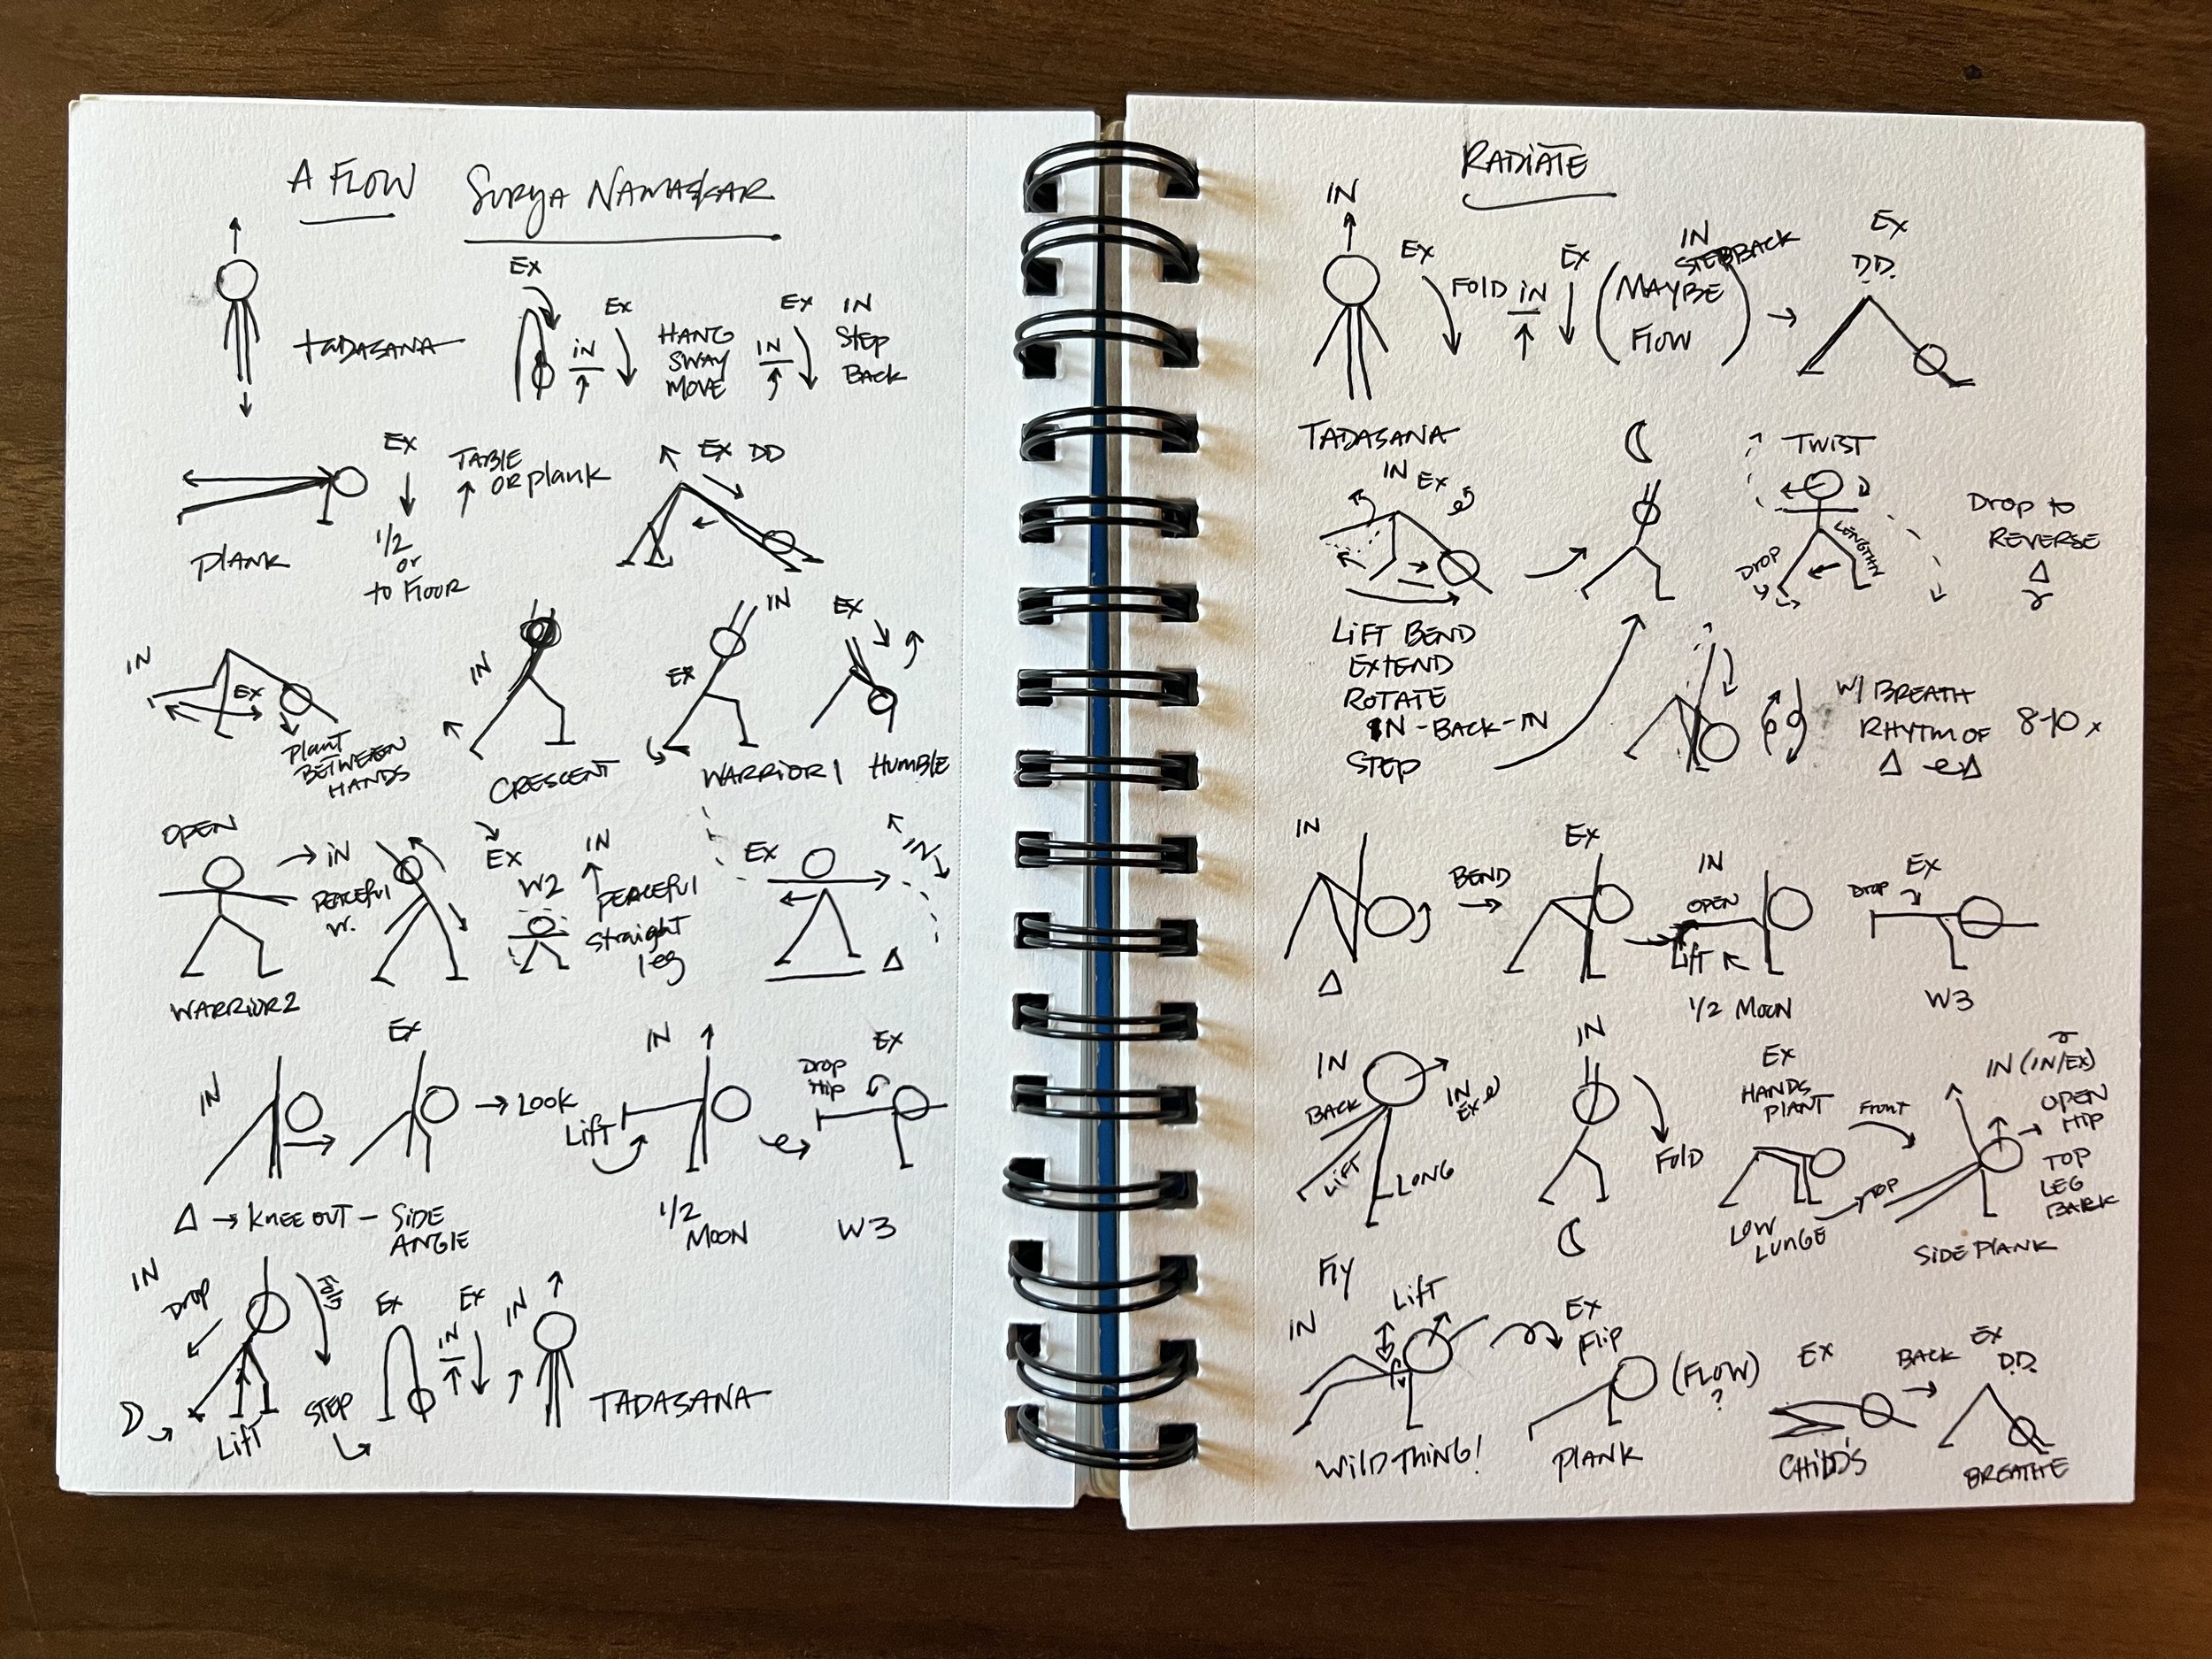 A FLOW SURYA NAMASKAR
TADASANA
EX
IN
EX
HANG
SWAY
MOVE
IN
EX
IN
STEP
BACK
PLANK
EX
1/2
or
to FLOOR
TABLE
OR plank
EX DD
IN
EX
plant
BETWEEN
HANDS
IN
CRESCENT
IN
EX
WARRIOR 1
EX
HUMBLE
OPEN
WARRIOR 2
IN
PEACEFUl
W.
EX
W2
IN
PEACEFUl
straight
leg
EX
IN
Δ
IN
EX
→ LOOK
Δ → KNEE OUT – SIDE
ANGLE
IN
Lift
1/2
MOON
Drop
Hip
EX
W3
IN
DROP
Lift
FOLD
STEP
EX
IN
EX
IN
TADASANA
RADIATE
IN
TADASANA
EX
FOLD
IN
EX
IN
STEP BACK
(MAYBE
FLOW)
EX
D.D.
IN EX
LIFT BEND
EXTEND
ROTATE
IN - BACK - IN
STEP
TWIST
DROP
LENGTHN
Drop to
REVERSE
Δ
W/ BREATH
RHYTM OF
Δ Δ
8-10 x
IN
Δ
BEND
EX
IN
OPEN
Lift
1/2 MOON
Drop
EX
W3
IN
BACK
LIFT
LONG
IN
EX
IN
FOLD
EX
HANDS
PLANT
LOW
LUNGE
Front
TOP
SIDE PLANK
IN (IN/EX)
OPEN
HIP
TOP
LEG
BACK
Fly
IN
Lift
WILD THING!
EX
Flip
PLANK
(FLOW)
?
EX
CHILD'S
BACK
EX
D.D.
BREATHE